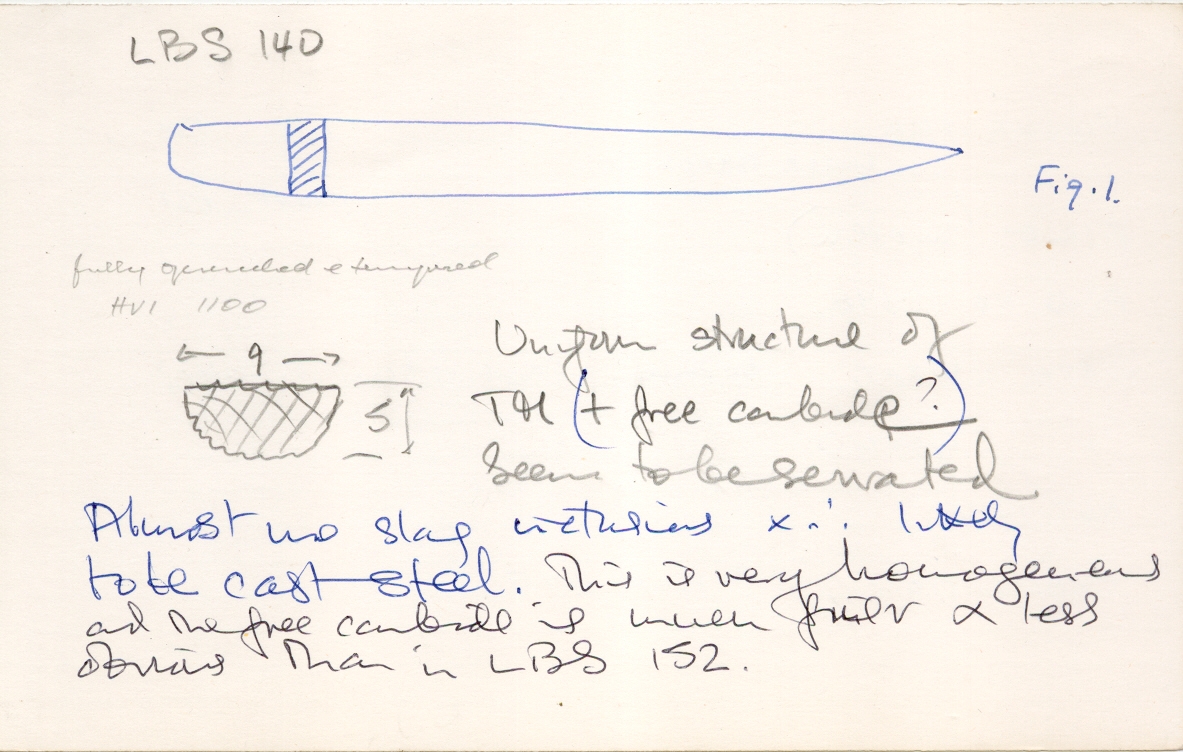 LBS 140
Fig. 1.
fully quenched & tempered
HV1 1100
← 9 →
5
Uniform structure of
TM (+ free carbide?)
Seems to be serrated
Almost no slag inclusions & ∴ likely
to be cast steel. This is very homogeneous
and the free carbide is much finer & less
obvious than in LBS 152.